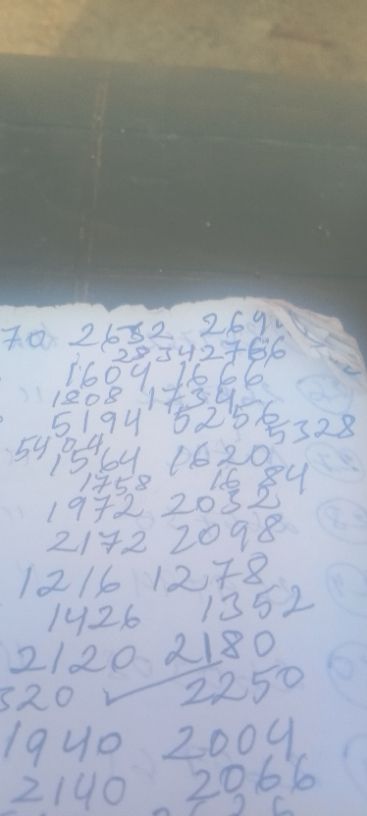 70 2632 264
2834 2766
1604 1666
1808 1734
5194 5256 5328
5404 1564 1620
1758 1684
1972 2032
2172 2098
1216 1278
1426 1352
2120 2180
320 ✓ 2250
1940 2004
2140 2066